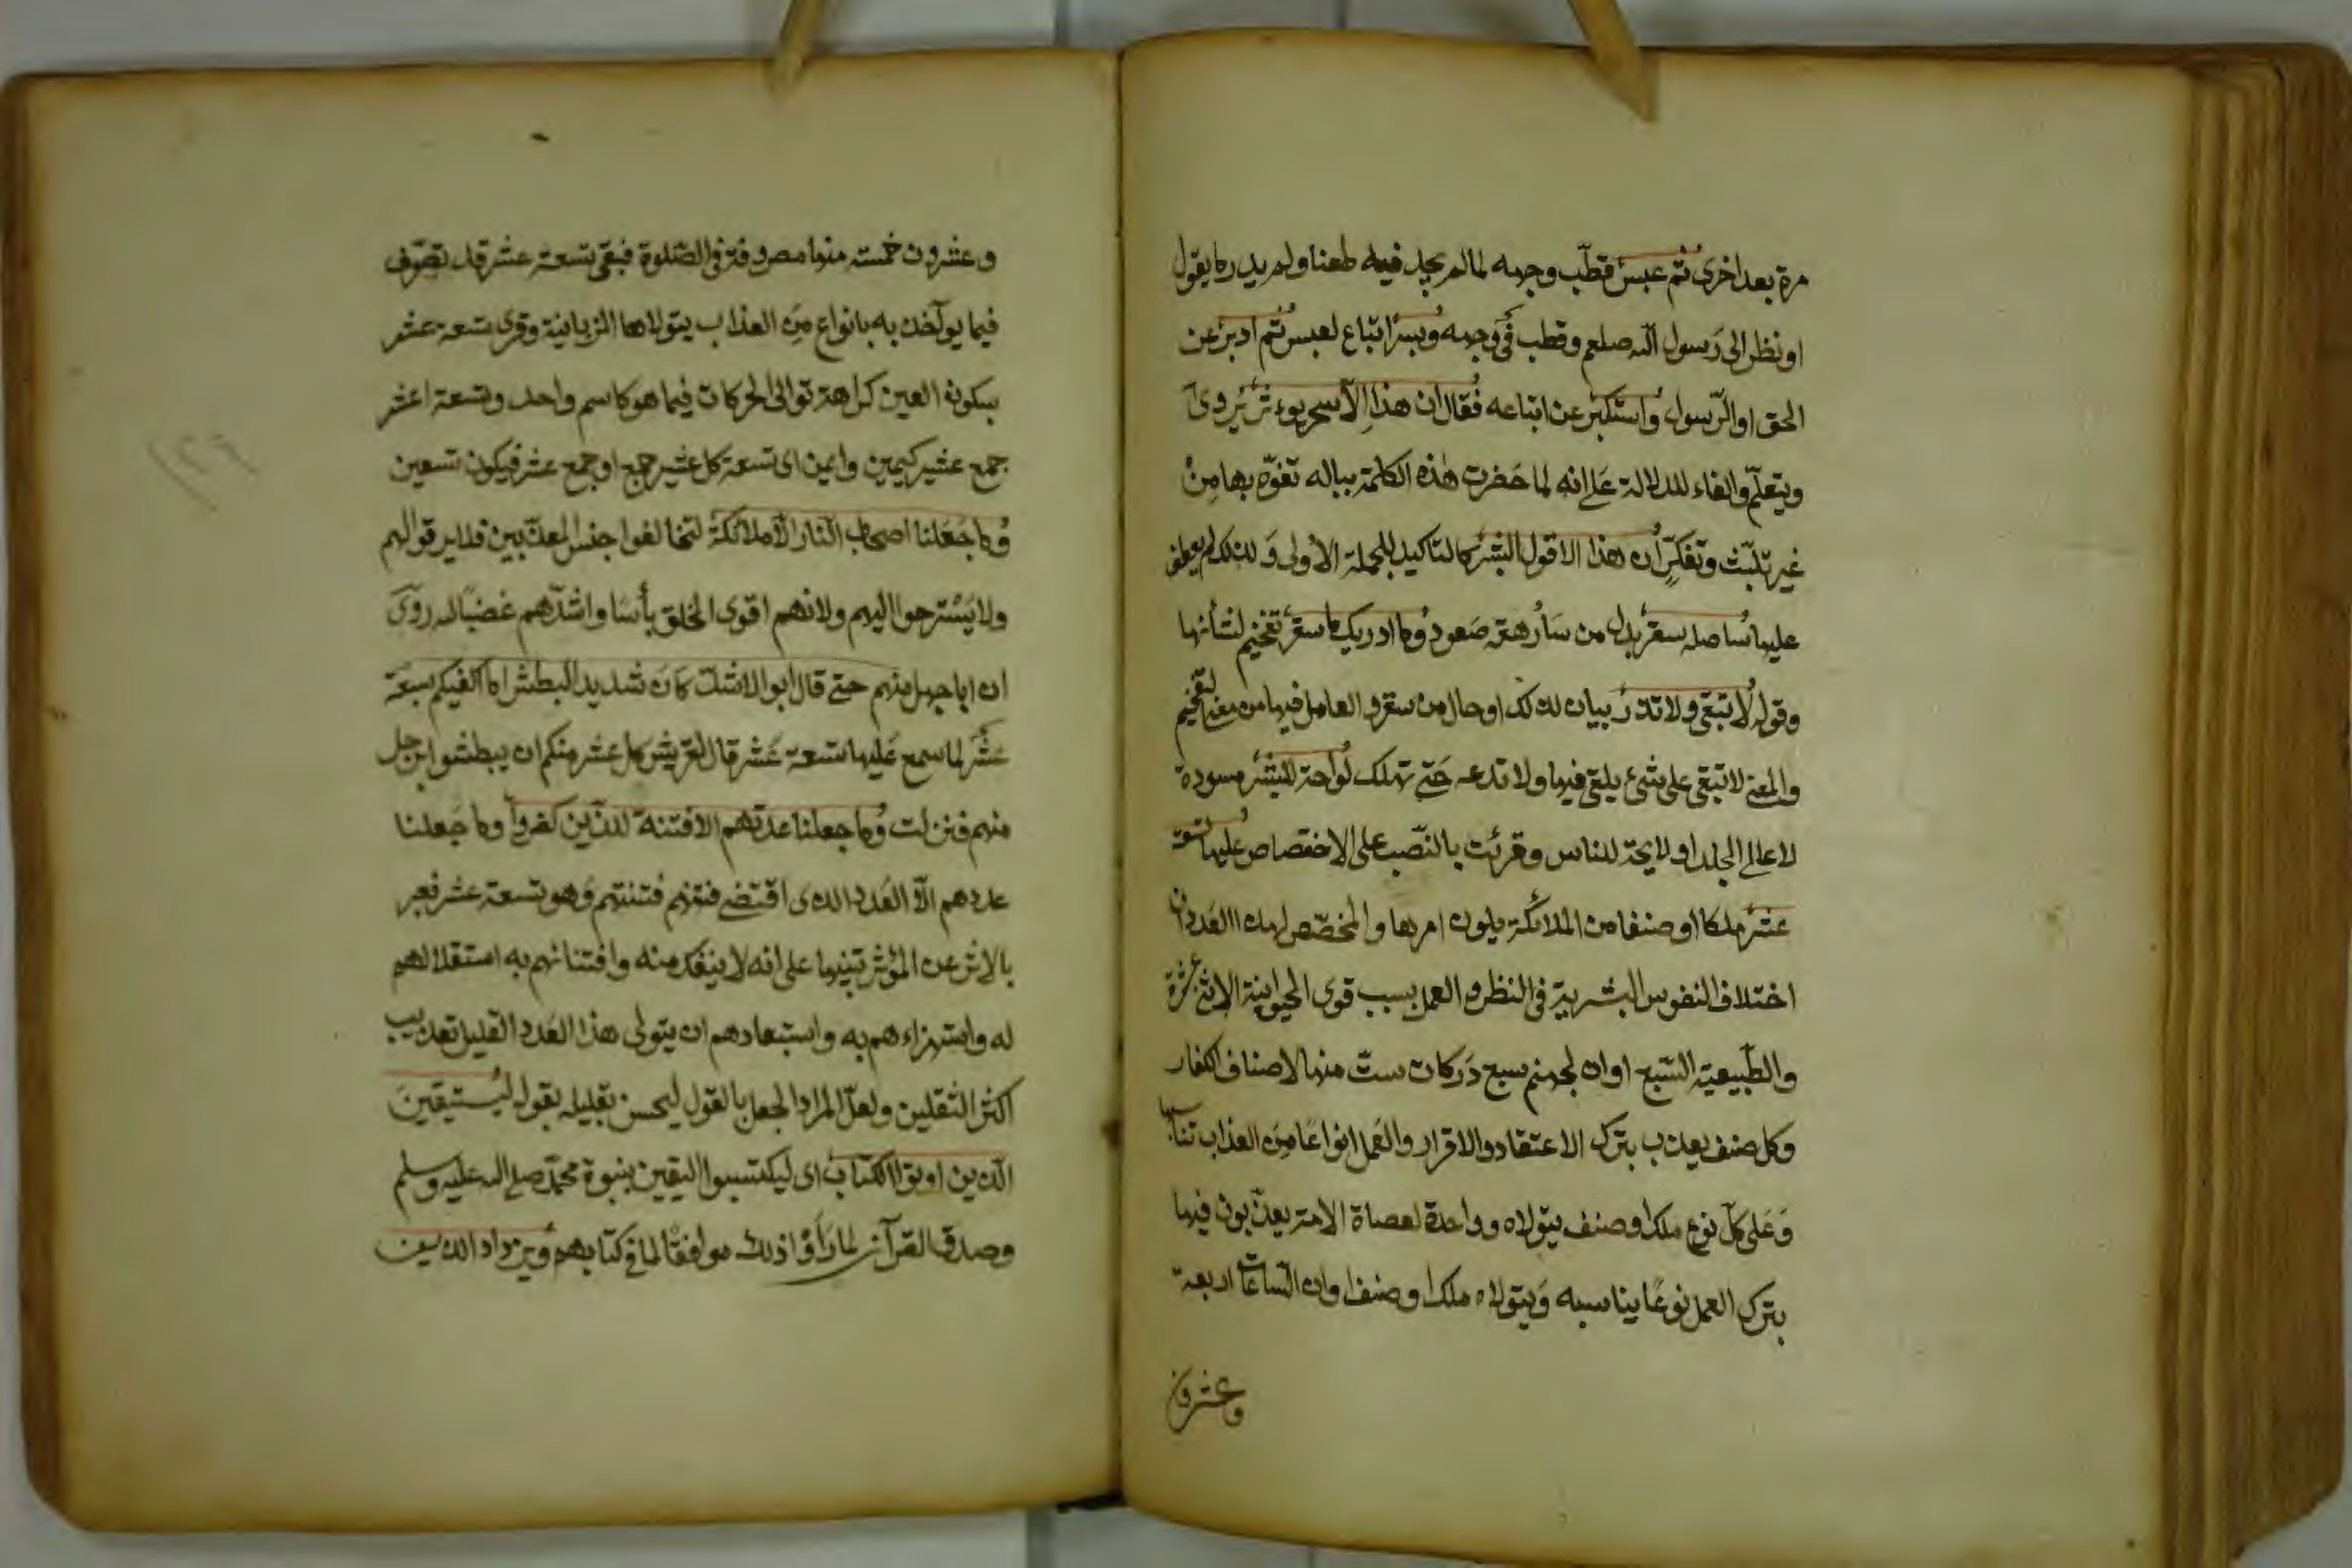 مرة بعد اخرى ثم عبس قطب وجهه لما لم يجد فيه طعنا ولم يدر ما يقول
او نظر الى رسول الله صلعم وقطب في وجهه وبسر اتباع لعبس ثم ادبر عن
الحق او الرسول واستكبر عن اتباعه فقال ان هذا الا سحر يوءثر يروى
ويتعلم والفاء للدلالة على انه لما خضرت هذه الكلمة بباله تفوّه بها من
غير تلبّث وتفكّر ان هذا الا قول البشر كالتاكيد للجملة الاولى ولذلك لم يعطف
عليها ساصله سقر بدل من سأرهقه صعودا وما ادريك ما سقر تفخيم لشأنها
وقوله لا تبقى ولا تذر بيان لذلك او حال من سقر والعامل فيها معنى التفخيم
والمعنى لا تبقى على شئ يلقى فيها ولا تدعه حتى تهلك لواحة للبشر مسودة
لاعالى الجلد او لايحة للناس وقرئت بالنّصب على الاختصاص عليها تسعة
عشر ملكا او صنفا من الملائكة يلون امرها والمخصّص لهذا العدد ان
اختلاف النفوس البشرية في النظر والعمل بسبب قوى الحيوانية الاثنى عشرة
والطّبيعية السّبع او ان لجهنم سبع دركات ستّ منها لاصناف الكفار
وكل صنف يعذب بترك الاعتقاد والاقرار والعمل انواعا من العذاب تناسبها
وعلى كلّ نوع ملك او صنف يتولاه وواحدة لعصاة الامة يعذّبون فيها
بترك العمل نوعًا يناسبه ويتولاه ملك او صنف او ان السّاعات اربعة
وعشرون
وعشرون خمسته منها مصروفة في الصّلوة فبقى تسعة عشر قد تصرّف
فيما يوآخذ به بانواع من العذاب يتولاها الزبانية وقرى تسعة عشر
بسكون العين كراهة توالى الحركات فيما هو كاسم واحد وتسعة اعشر
جمع عشير كيمين وايمن اى تسعة كل عشير جمع او جمع عشر فيكون تسعين
وما جعلنا اصحاب النار الا ملائكة لتخالفوا جنس المعذبين فلا يرقوا لهم
ولا يسترحوا اليهم ولانهم اقوى الخلق بأسا واشدّهم غضبًا لله روى
ان ابا جهل منهم حتى قال ابو الاشد كان شديد البطش انا اكفيكم سبعة
عشر لما سمع عليها تسعة عشر قال لقريش كل عشر منكم ان يبطشوا برجل
منهم فنزلت وما جعلنا عدتهم الا فتنة للذين كفروا وما جعلنا
عددهم الا العدد الذى اقتضى فتنهم فتنتهم وهو تسعة عشر فعبر
بالاثر عن المؤثر تنبيها على انه لا ينفك منه وافتنانهم به استقلالهم
له واستهزاءهم به واستبعادهم ان يتولى هذا العدد القليل تعذيب
اكثر الثقلين ولعلّ المراد الجعل بالقول ليحسن تعليله بقوله ليستيقين
الذين اوتوا الكتاب اى ليكتسبوا اليقين بنبوة محمد صلى الله عليه وسلم
وصدق القرآن لما رأوا ذلك موافقًا لما في كتابهم ويزداد الذين